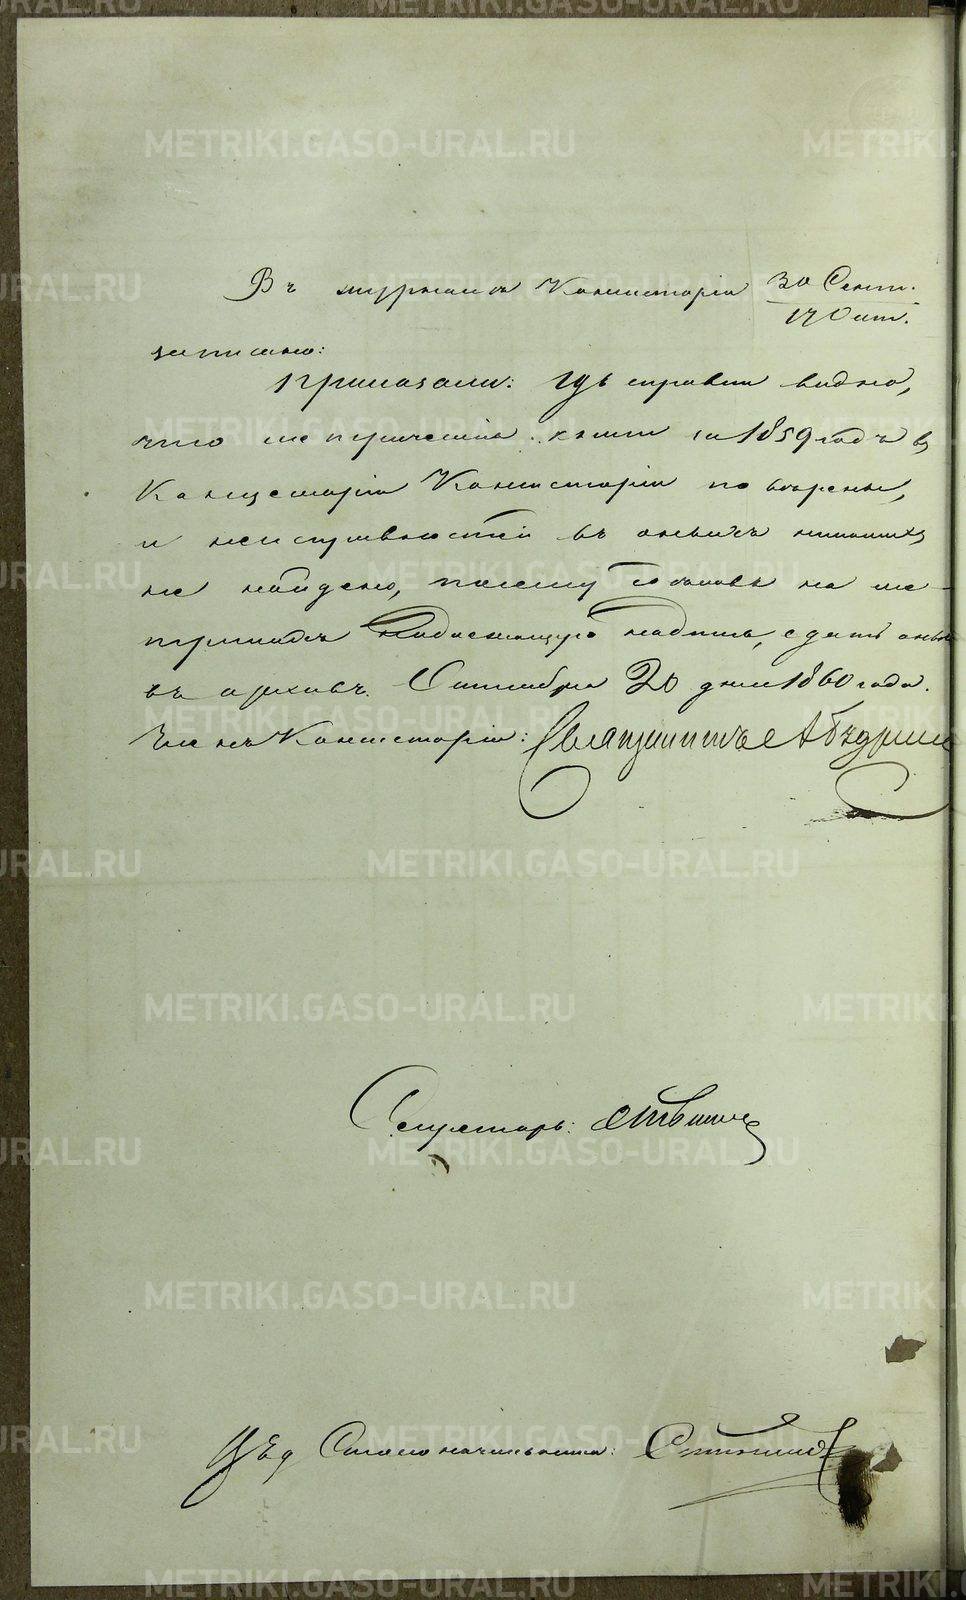 Въ журналѣ Консисторіи 30 Сент.
17 Окт.
записано:
Приказали: Изъ справки видно,
что метрическія книги за 1859 годъ въ
Канцеляріи Консисторіи повѣрены,
и неисправностей въ оныхъ никакихъ
не найдено, почему сдѣлавъ на ме-
трикахъ надлежащую надпись, сдать оныя
въ архивъ. Сентября 20 дня 1860 года.
Членъ Консисторіи: Священникъ
Секретарь:
Столоначальника:
METRIKI.GASO-URAL.RU